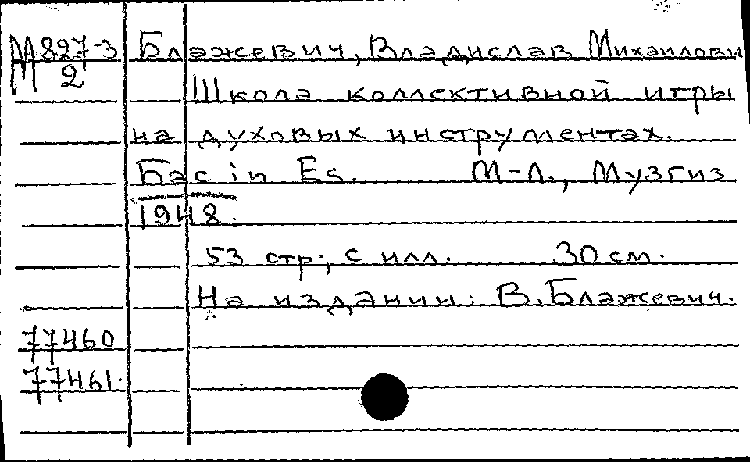 М827-3 Блажевич, Владислав Михайлович
М 2
Школа коллективной игры
на духовых инструментах.
Бас in Es. М-Л., Музгиз
1948.
53 стр., с илл. 30 см.
На издании: В. Блажевич.
77460
77461.